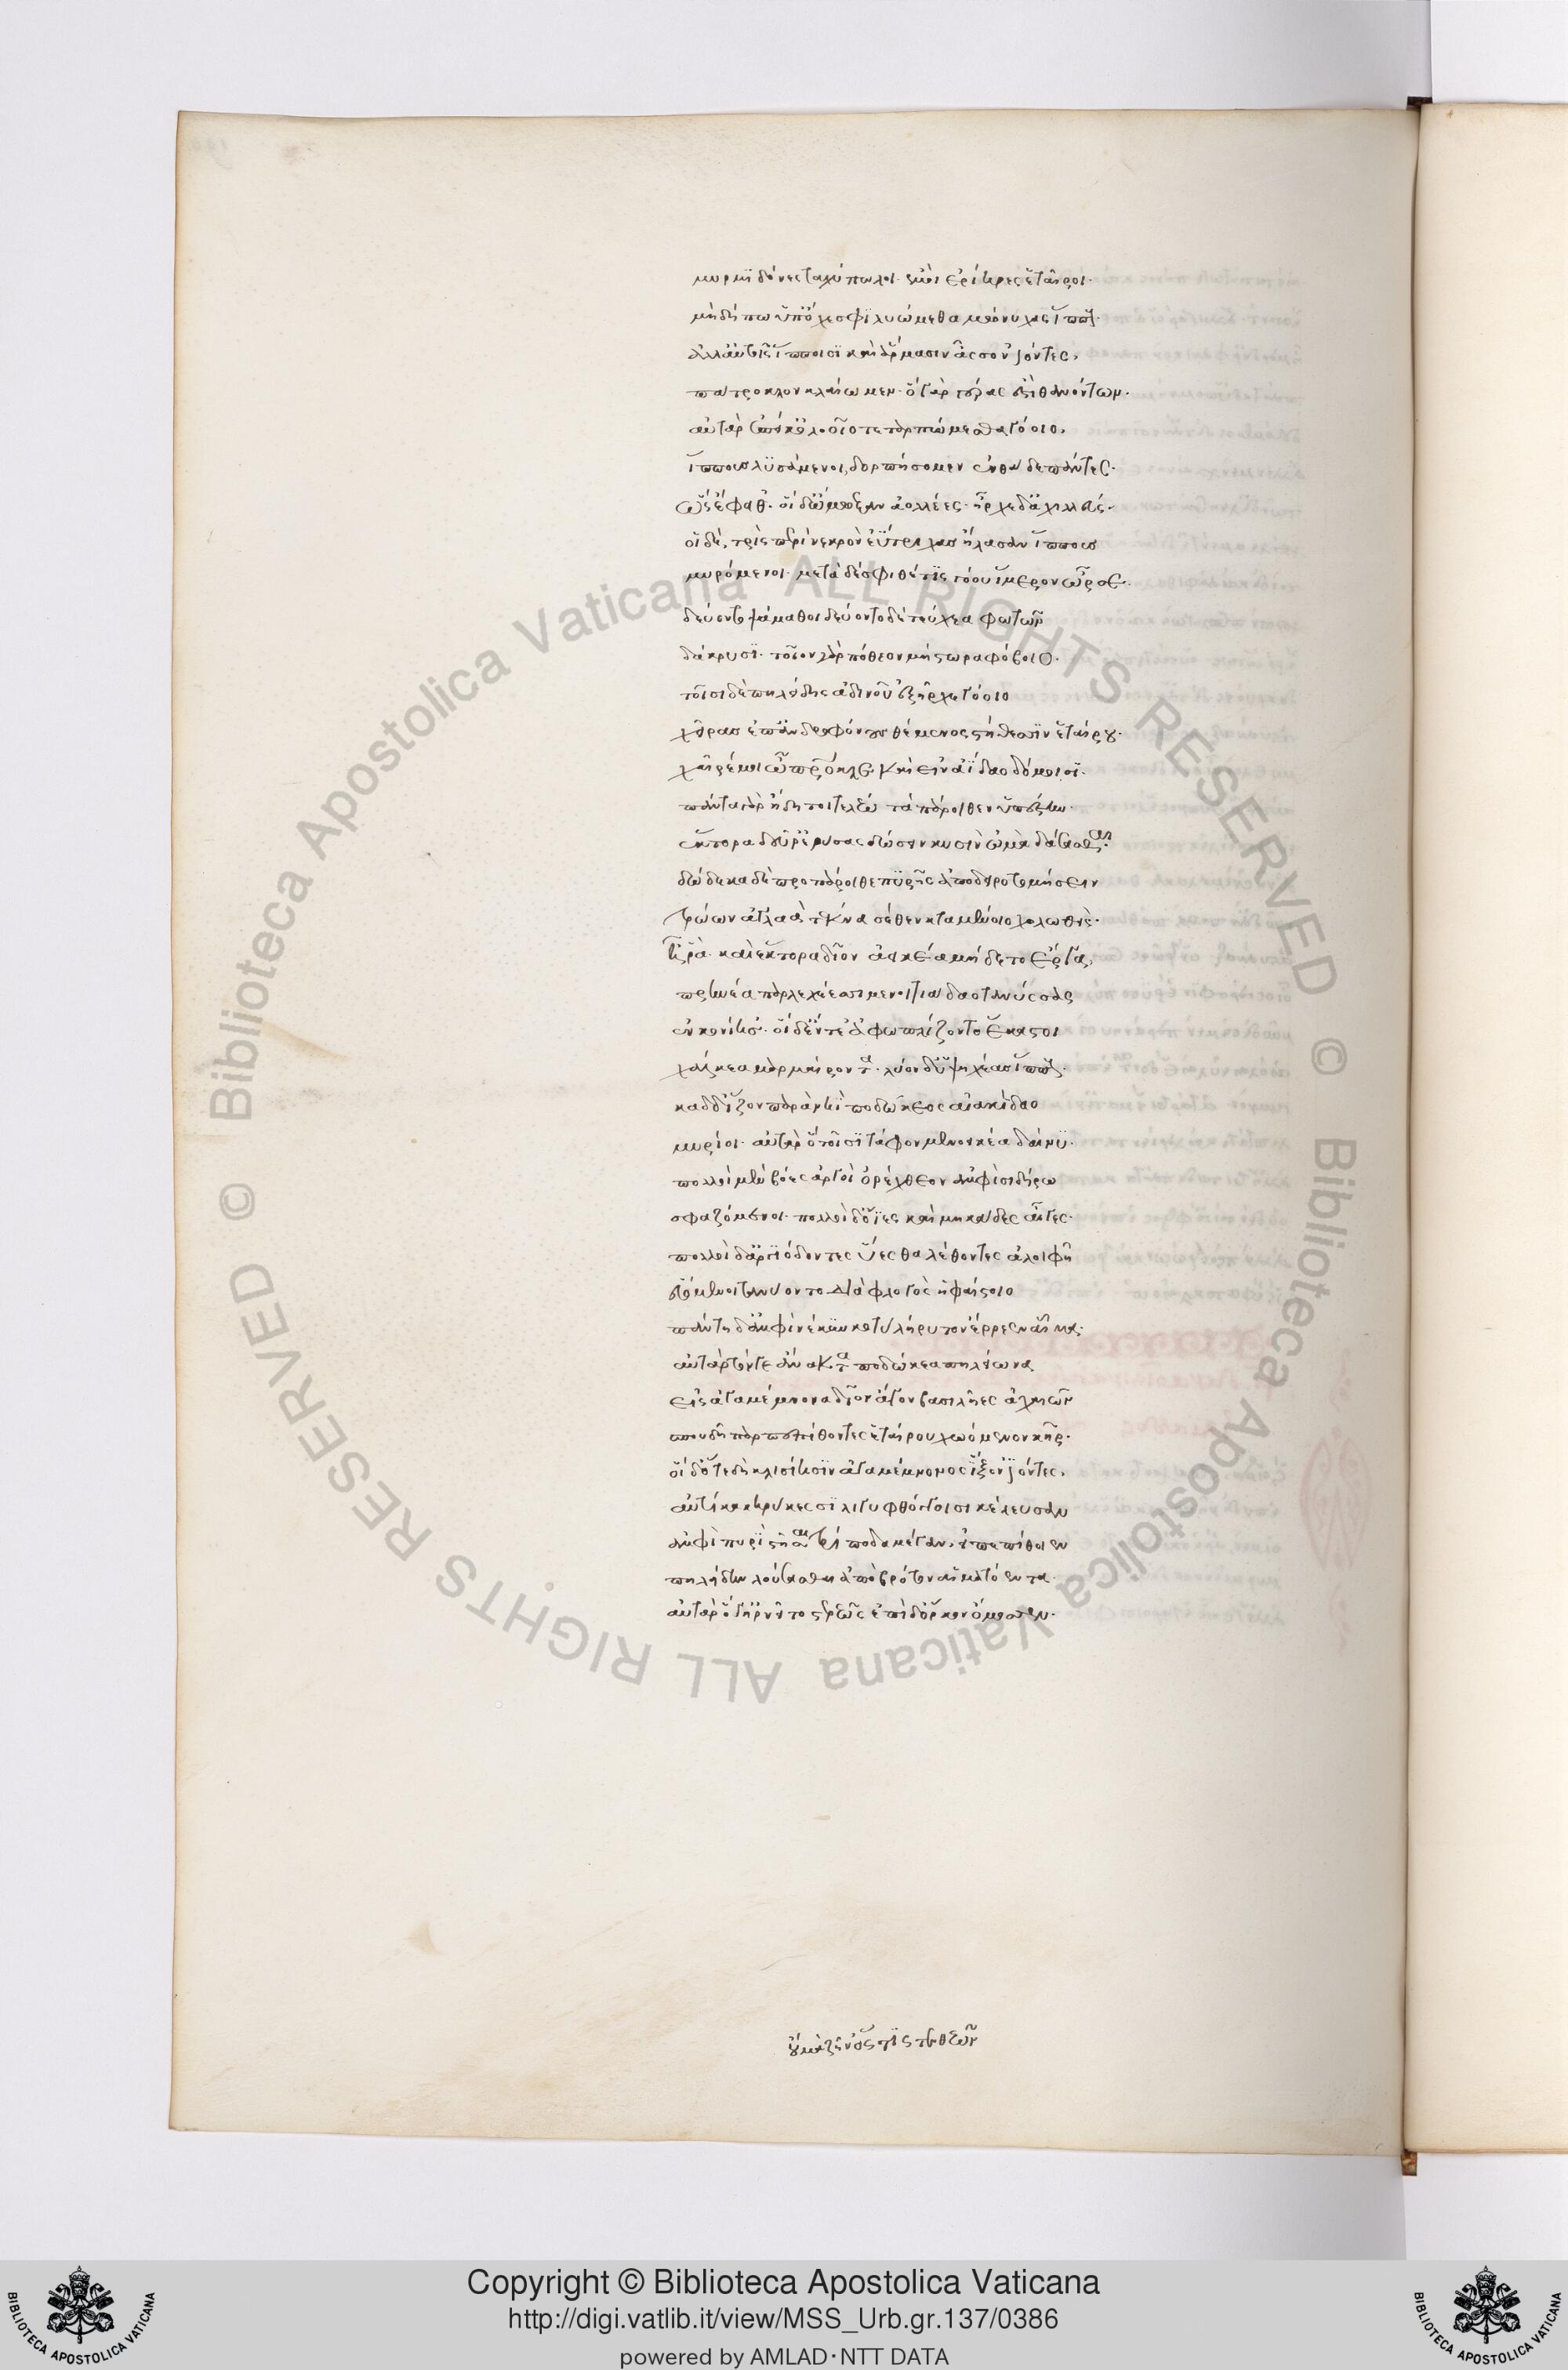 μυρμιδόνες ταχύπωλοι· ἐμοὶ ἐρίηρες ἑταῖροι·
μὴ δή πω ὑπ' ὄχεσφι λυώμεθα μώνυχας ἵππους·
ἀλλ' αὐτοῖς ἵπποισι καὶ ἅρμασιν ἆσσον ἰόντες,
πάτροκλον κλαίωμεν· ὃ γὰρ γέρας ἐστὶ θανόντων·
αὐτὰρ ἐπεί κ' ὀλοοῖο τεταρπώμεσθα γόοιο,
ἵππους λυσάμενοι, δορπήσομεν ἐνθάδε πάντες·
ὣς ἔφαθ'· οἱ δ' ᾤμωξαν ἀολλέες· ἦρχε δ' ἀχιλλεύς·
οἱ δὲ, τρὶς περὶ νεκρὸν ἐύτριχας ἤλασαν ἵππους
μυρόμενοι· μετὰ δέ σφι θέτις γόου ἵμερον ὦρσε·
δεύοντο ψάμαθοι δεύοντο δὲ τεύχεα φωτῶν
δάκρυσι· τοῖον γὰρ πόθεον μήστωρα φόβοιο·
τοῖσι δὲ πηλείδης ἁδινοῦ ἐξῆρχε γόοιο
χεῖρας ἐπ' ἀνδροφόνους θέμενος στήθεσσιν ἑταίρου·
χαῖρέ μοι ὦ πάτροκλε, καὶ εἰν ἀίδαο δόμοισι·
πάντα γὰρ ἤδη τοι τελέω τὰ πάροιθεν ὑπέστην·
ἕκτορα δεῦρ' ἐρύσας δώσειν κυσὶν ὠμὰ δάσασθαι·
δώδεκα δὲ προπάροιθε πυρῆς ἀποδειροτομήσειν
τρώων ἀγλαὰ τέκνα σέθεν κταμένοιο χολωθείς·
ἦ ῥα· καὶ ἕκτορα δῖον ἀεικέα μήδετο ἔργα,
πρηνέα πὰρ λεχέεσσι μενοιτιάδαο τανύσσας
ἐν κονίῃς· οἱ δ' ἔντε' ἀφωπλίζοντο ἕκαστοι
χάλκεα μαρμαίροντα· λύον δ' ὑψηχέας ἵππους·
καδδ' ἷζον παρὰ νηὶ ποδώκεος αἰακίδαο
μυρίοι· αὐτὰρ ὃ τοῖσι τάφον μενοεικέα δαίνυ·
πολλοὶ μὲν βόες ἀργοὶ ὀρέχθεον ἀμφὶ σιδήρω
σφαζόμενοι· πολλοὶ δ' ὄιες καὶ μηκάδες αἶγες·
πολλοὶ δ' ἀργιόδοντες ὕες θαλέθοντες ἀλοιφῆ
εὑόμενοι τανύοντο διὰ φλογὸς ἡφαίστοιο
πάντη δ' ἀμφὶ νέκυν κοτυλήρυτον ἔρρεεν αἷμα·
αὐτὰρ τόν γε ἄνακτα ποδώκεα πηλείωνα
εἰς ἀγαμέμνονα δῖον ἄγον βασιλῆες ἀχαιῶν
σπουδῆ παρπεπιθόντες ἑταίρου χωόμενον κῆρ·
οἱ δ' ὅτε δὴ κλισίησιν ἀγαμέμνονος ἷξον ἰόντες,
αὐτίκα κηρύκεσσι λιγυφθόγγοισι κέλευσαν
ἀμφὶ πυρὶ στῆσαι τρίποδα μέγαν, εἰ πεπίθοιεν
πηλείδην λούσασθαι ἄπο βρότον αἱματόεντα·
αὐτὰρ ὅ γ' ἠρνεῖτο στερεῶς ἐπὶ δ' ὅρκον ὄμοσσεν·
οὐ μὰ ζῆν' ὅστις τε θεῶν
Copyright © Biblioteca Apostolica Vaticana
http://digi.vatlib.it/view/MSS_Urb.gr.137/0386
powered by AMLAD·NTT DATA